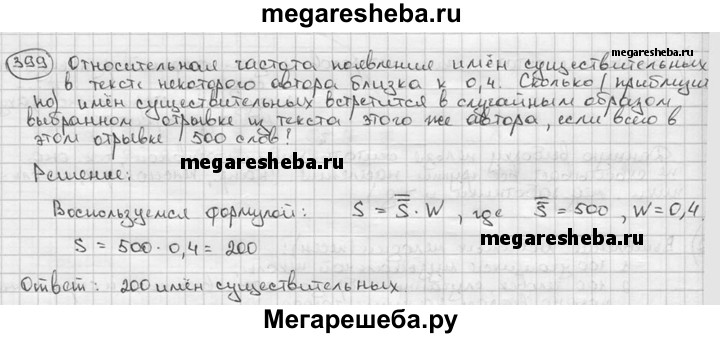 megaresheba.ru
399 Относительная частота появление имён существительных
в тексте некоторого автора близка к 0,4. Сколько (приблизит
но) имён существительных встретится в случайным образом
выбранном отрывке из текста этого же автора, если всего в
этом отрывке 500 слов?
megaresheba.ru
megaresheba.ru
Решение:
Воспользуемся формулой: S = S̿ · W, где S̿ = 500, W = 0,4
S = 500 · 0,4 = 200
megaresheba.ru
Ответ: 200 имён существительных
Мегарешеба.ру